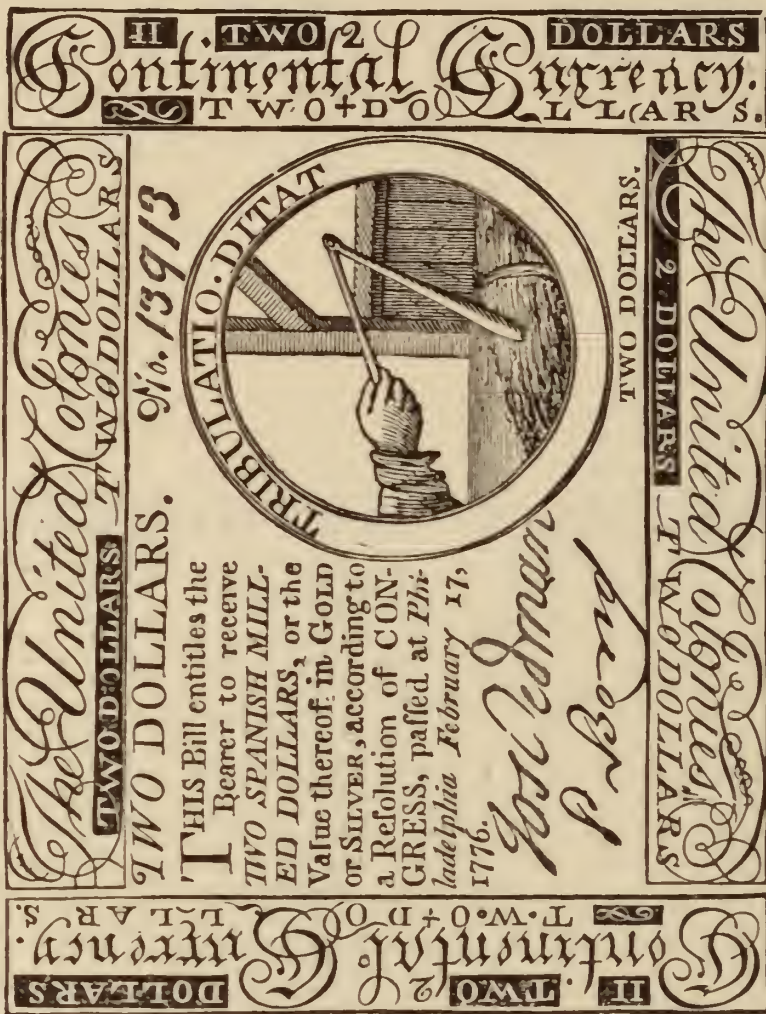 II TWO 2 DOLLARS
Continental Currency.
TWO+DOLLARS.
The United Colonies
TWO DOLLARS TWO DOLLARS
TWO DOLLARS. No. 13913
THIS Bill entitles the
Bearer to receive
TWO SPANISH MILL-
ED DOLLARS, or the
Value thereof in GOLD
or SILVER, according to
a Reſolution of CON-
GRESS, paſſed at Phi-
ladelphia February 17,
1776.
TRIBULATIO. DITAT
TWO DOLLARS.
Jos Redman
2 DOLLARS
The United Colonies
TWO DOLLARS
II TWO 2 DOLLARS
Continental Currency.
T·W·O+DOLLARS.